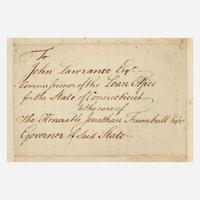 To
John Lawrance Esqr
Commissioner of the Loan Office
for the State of Connecticut
to the care of
The Honorable Jonathan Trumbull Esqr
Governor of said State